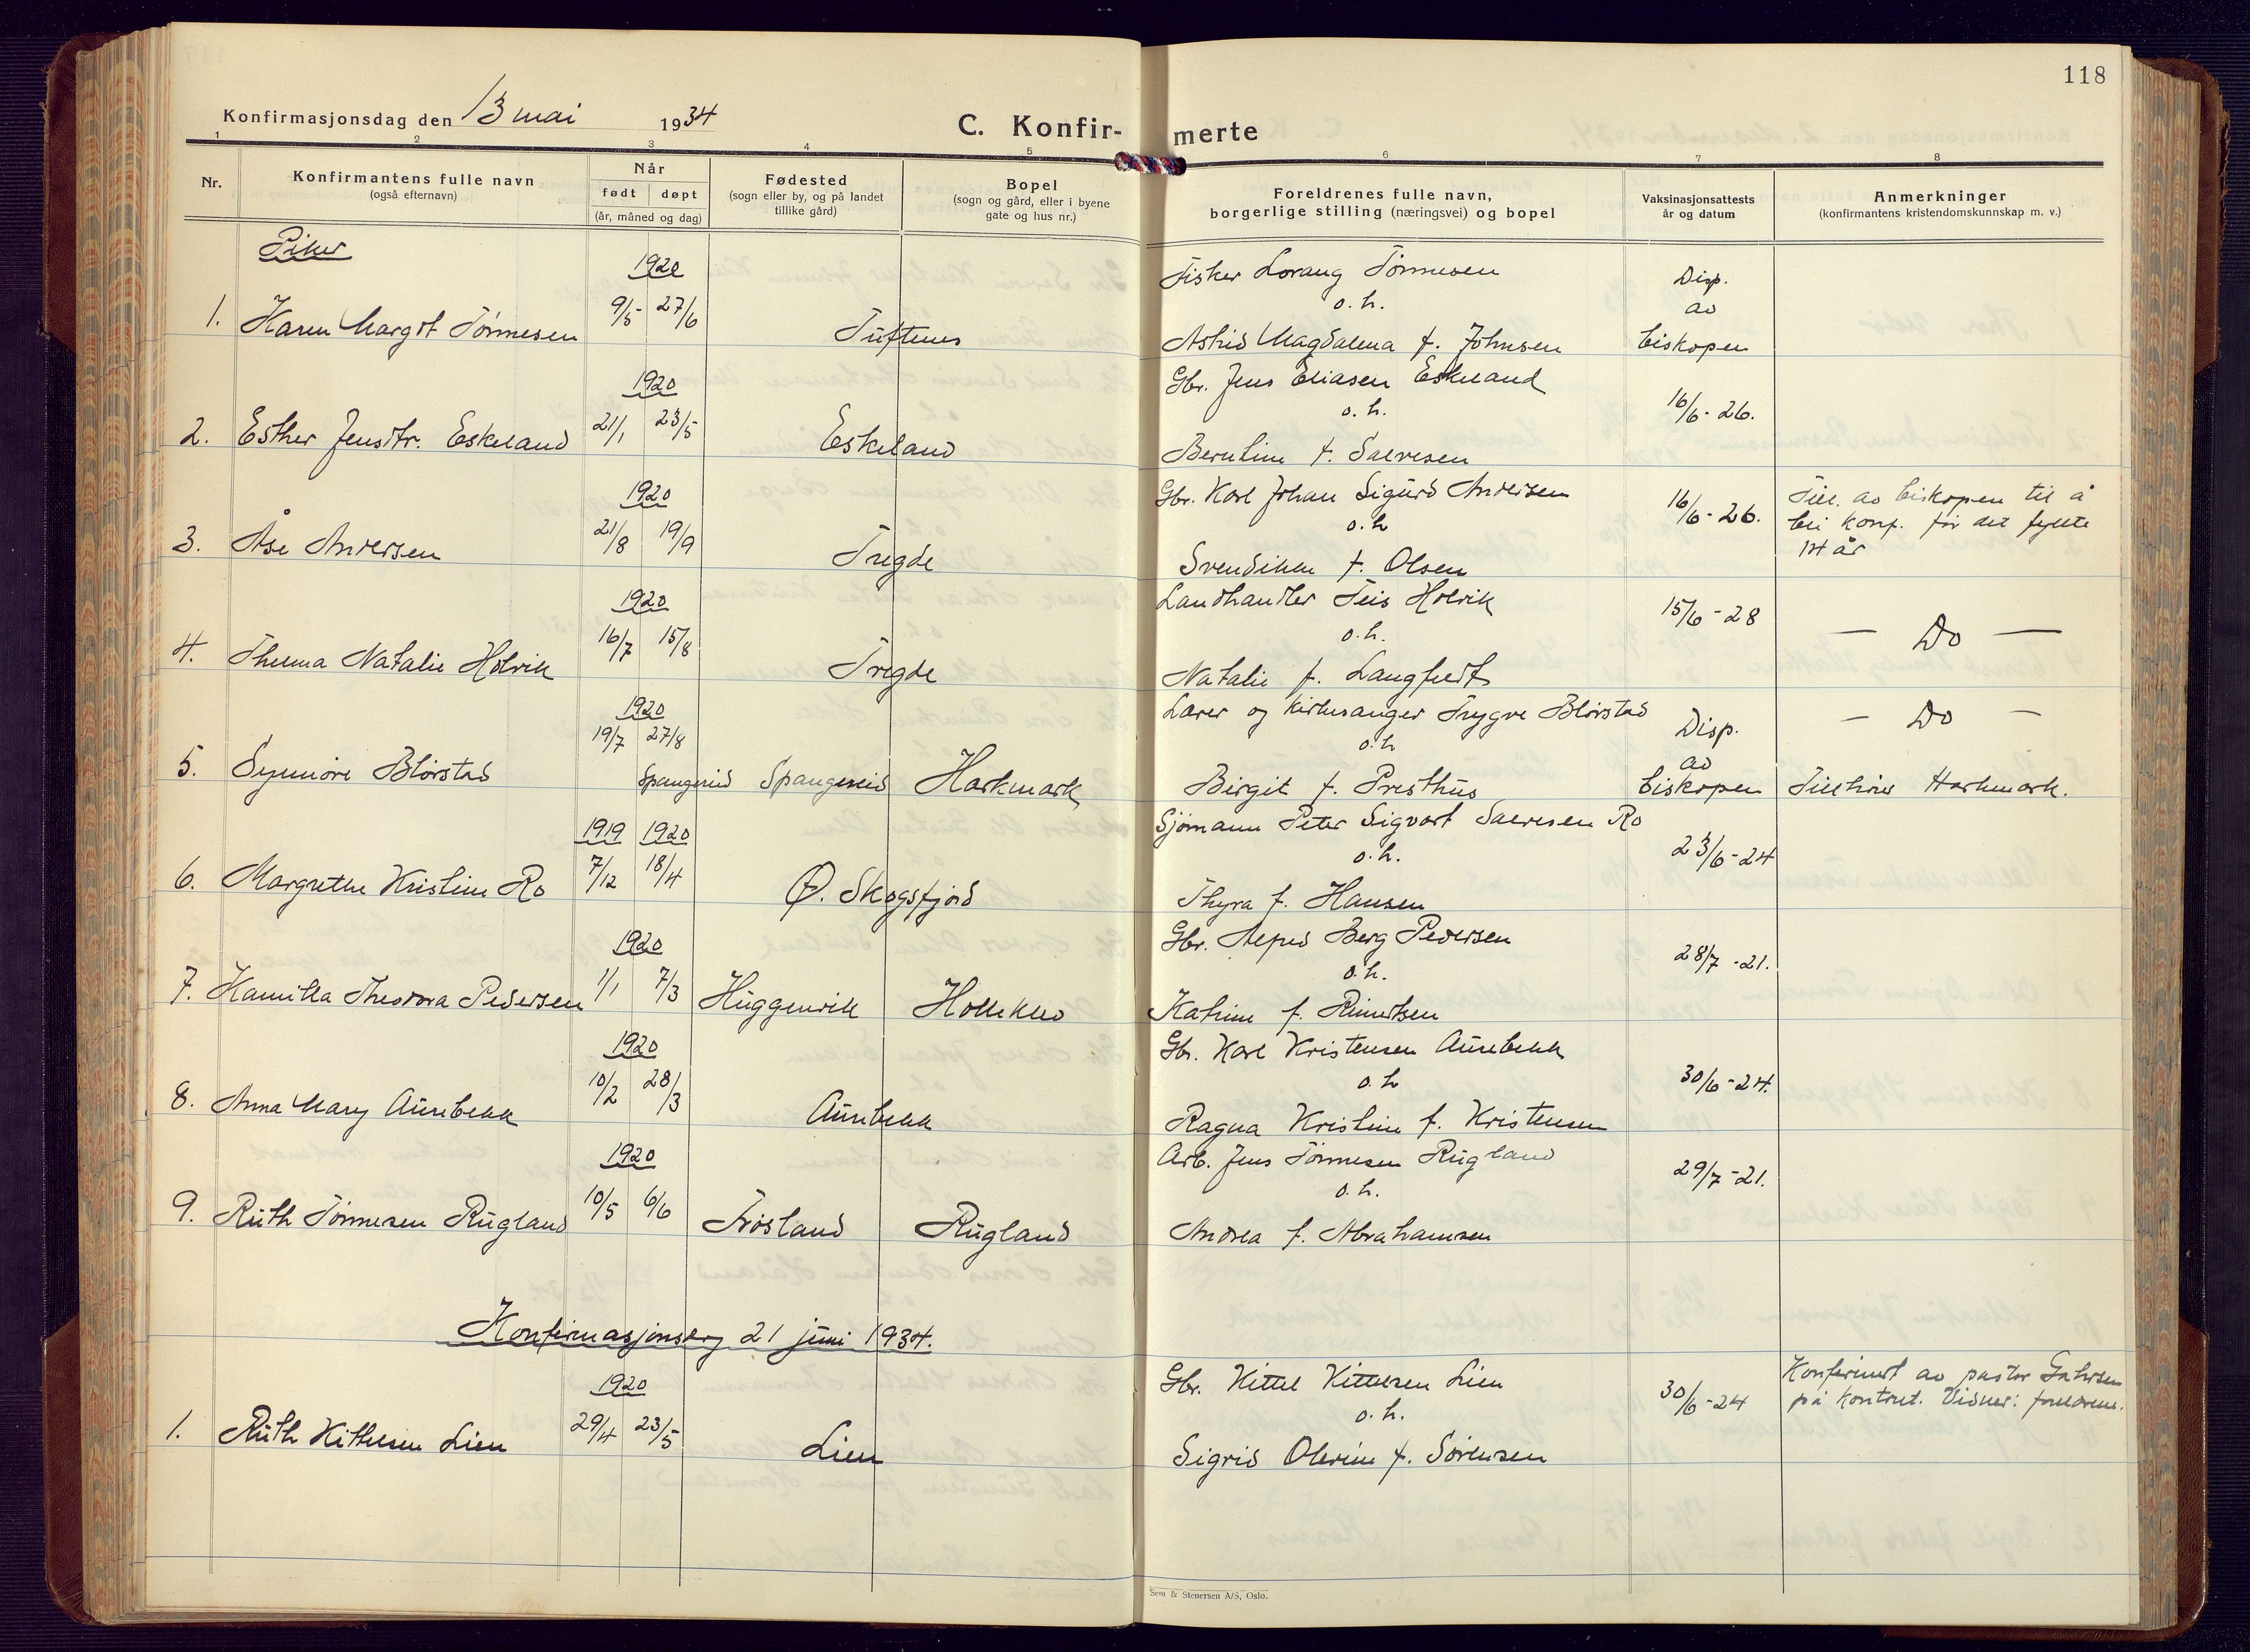 118
Konfirmasjonsdag den 13 mai 1934
C. Konfir- merte
1 2 3 4 5 6 7 8
Nr.
Konfirmantens fulle navn
(også efternavn)
Når
født døpt
(år, måned og dag)
Fødested
(sogn eller by, og på landet
tillike gård)
Bopel
(sogn og gård, eller i byene
gate og hus nr.)
Foreldrenes fulle navn,
borgerlige stilling (næringsvei) og bopel
Vaksinasjonsattests
år og datum
Anmerkninger
(konfirmantens kristendomskunnskap m. v.)
Piker
1920
1. Karen Margit Tönnesen 9/5 27/6 Tuftenes
Fisker Lorang Tönnesen
o. h.
Astrid Magdalena f. Johnsen
Disp.
av
biskopen
1920
2. Esther Jensdtr. Eskeland 21/1 23/5 Eskeland
Gbr. Jens Eliasen Eskeland
o. h.
Berntine f. Salvesen
16/6-26.
1920
3. Åse Andersen 21/8 19/9 Tregde
Gbr. Karl Johan Sigurd Andersen
o. h
Svendikke f. Olsen
16/6-26.
Till. av biskopen til å
bli konf. før det fyllte
14 år
1920
4. Thelma Natalie Holvik 16/7 15/8 Tregde
Landhandler Teis Holvik
o. h.
Natalie f. Langfeldt
15/6-28
— Do —
1920
5. Synnöve Blörstad 19/7 27/8 Spangereid Spangereid Harkmark
Lærer og kirkesanger Trygve Blörstad
o. h
Birgit f. Presthus
Disp.
av
biskopen
— Do —
Tilhører Harkmark.
1919 1920
6. Margrethe Kristine Ro 7/12 18/4 Ø. Skogsfjord
Sjømann Peter Sigvart Salvesen Ro
o. h.
Thyra f. Hansen
23/6-24
1920
7. Kamilla Theodora Pedersen 1/1 7/3 Huggenvik Hollekleo
Gbr. Alfred Berg Pedersen
o. h.
Katrine f. Rinertsen
28/7-21.
1920
8. Anna Mary Aurebekk 10/2 28/3 Aurebekk
Gbr. Karl Kristensen Aurebekk
o. h
Ragna Kristine f. Kristensen
30/6-24.
1920
9. Ruth Tönnesen Rugland 10/5 6/6 Frösland Rugland
Arb. Jens Tönnesen Rugland
o. h.
Andrea f. Abrahamsen
29/7-21.
Konfirmasjonsdag 21 juni 1934.
1920
1. Ruth Kittelsen Lien 29/4 23/5 Lien
Gbr. Kittel Kittelsen Lien
o. h.
Sigrid Olevine f. Sörensen
30/6-24
Konfirmert av pastor
på kontoret. Vidner: foreldrene.
Sem & Stenersen A/S, Oslo.